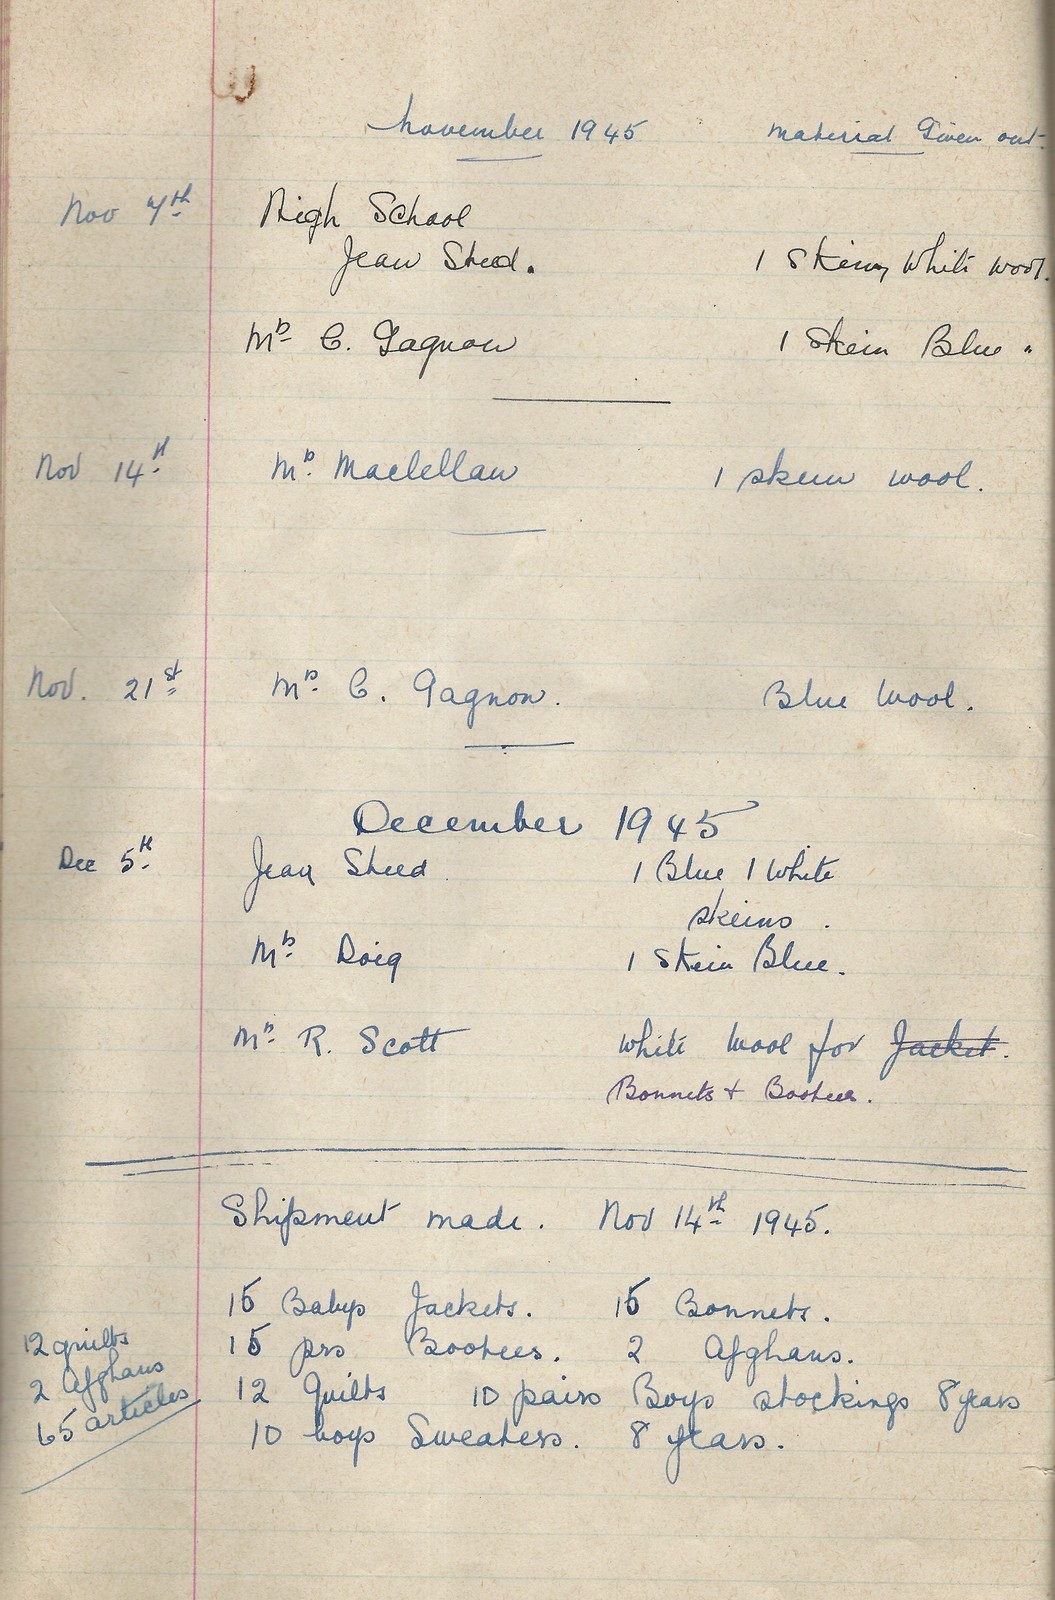 November 1945 Material Given out.
Nov 7th High School
Jean Sheed. 1 Skein White Wool.
Mrs C. Gagnon 1 Skein Blue "
Nov 14th Mrs. Maclellan 1 skein wool.
Nov. 21st Mrs. C. Gagnon. Blue Wool.
December 1945
Dec 5th Jean Sheed. 1 Blue 1 White
skeins.
Mrs. Doig 1 Skein Blue.
Mrs. R. Scott White Wool for Jacket.
Bonnets + Bootees.
Shipment made. Nov 14th 1945.
15 Babys Jackets. 15 Bonnets.
12 quilts 15 prs Bootees. 2 Afghans.
2 Afghans 12 Quilts 10 pairs Boys stockings 8 years
65 articles 10 boys Sweaters. 8 years.